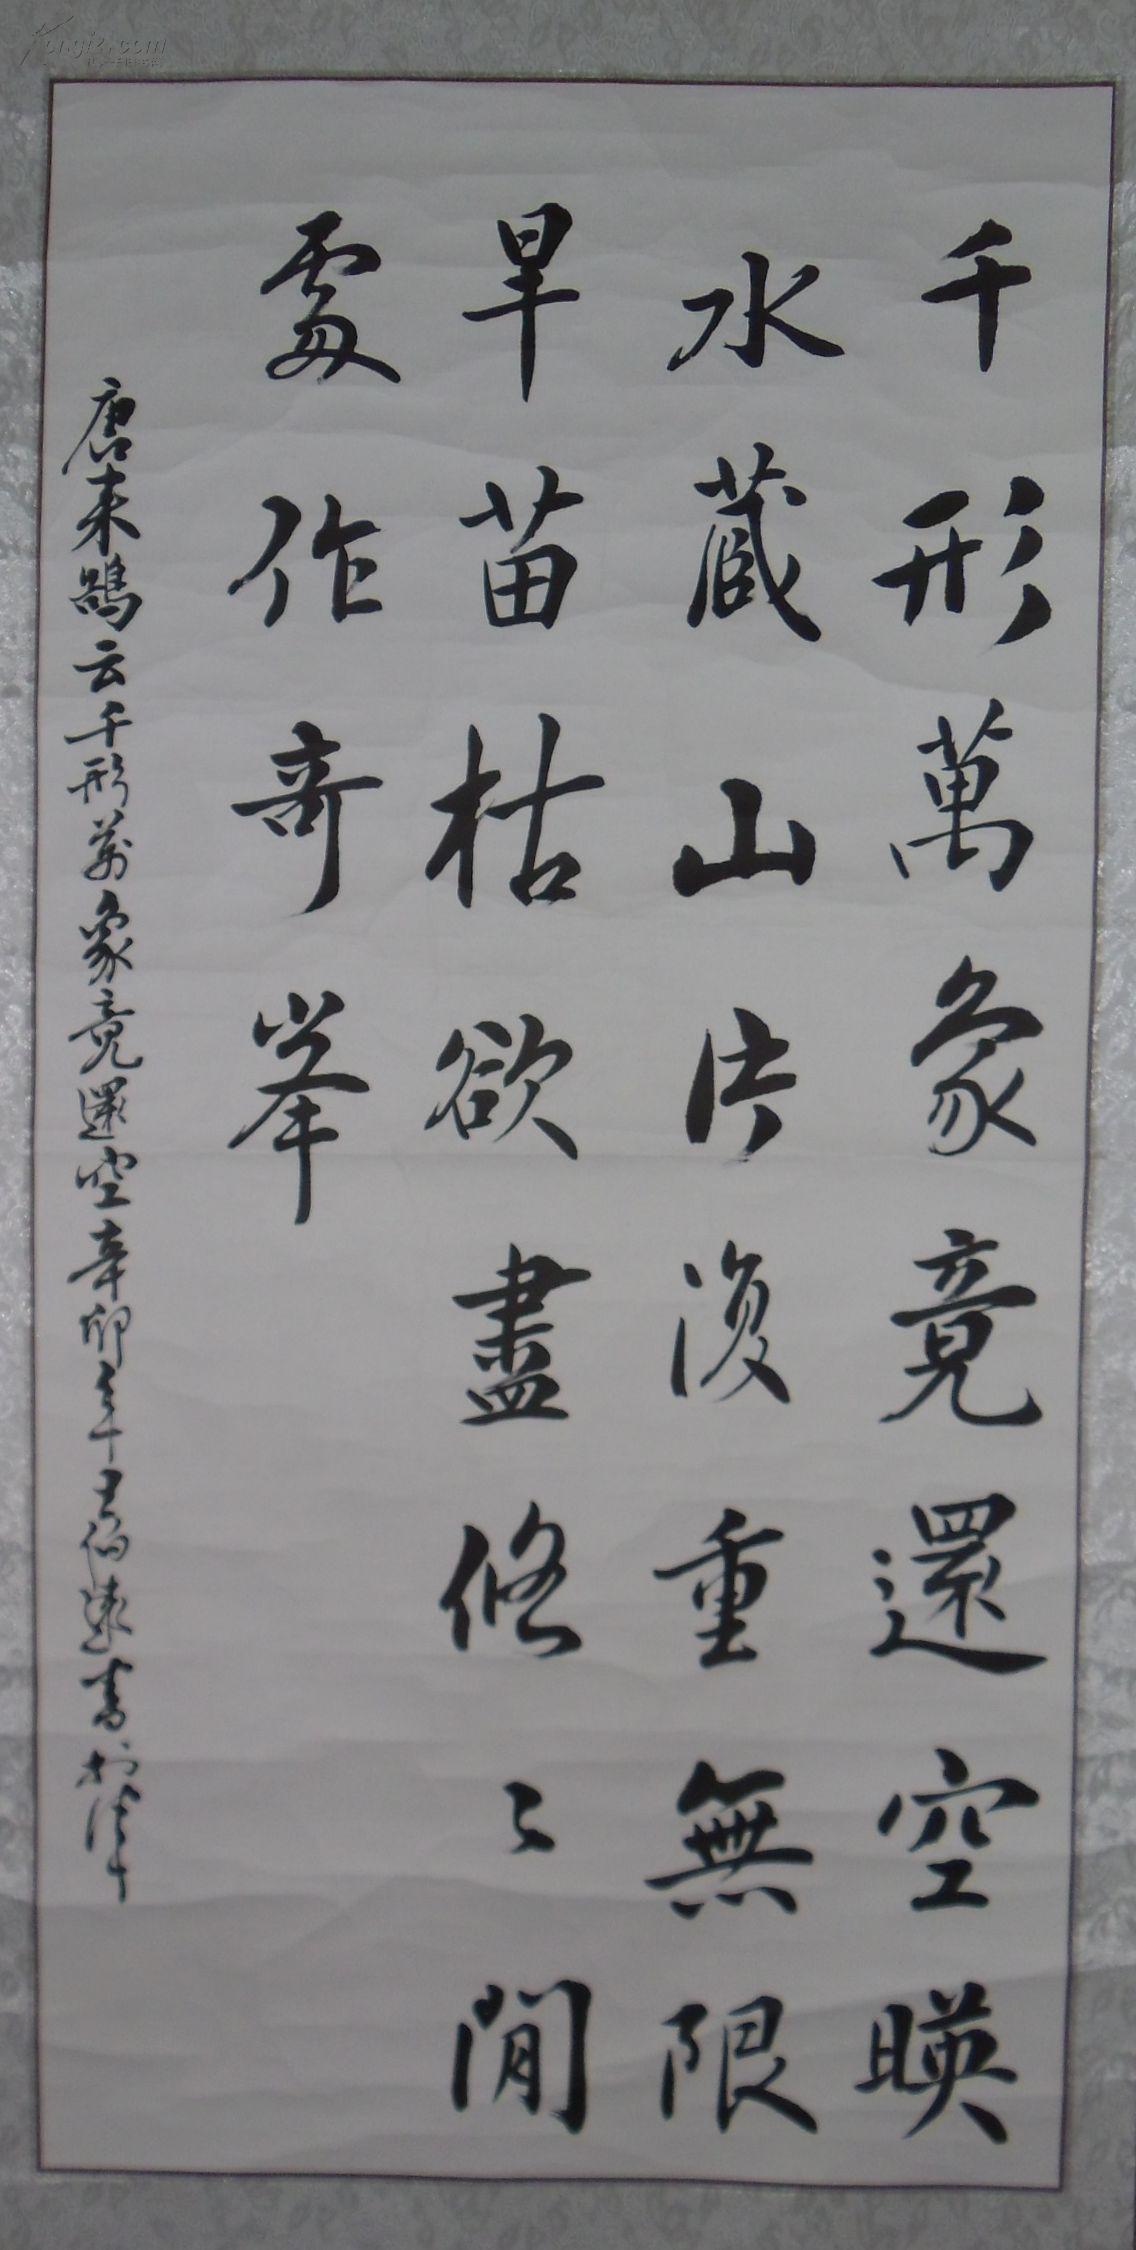 千形萬象竟還空暎
水藏山片復重無限
旱苗枯欲盡悠〻閒
處作奇峯
唐来鵠云千形萬象竟還空辛卯年士伯遠書於津